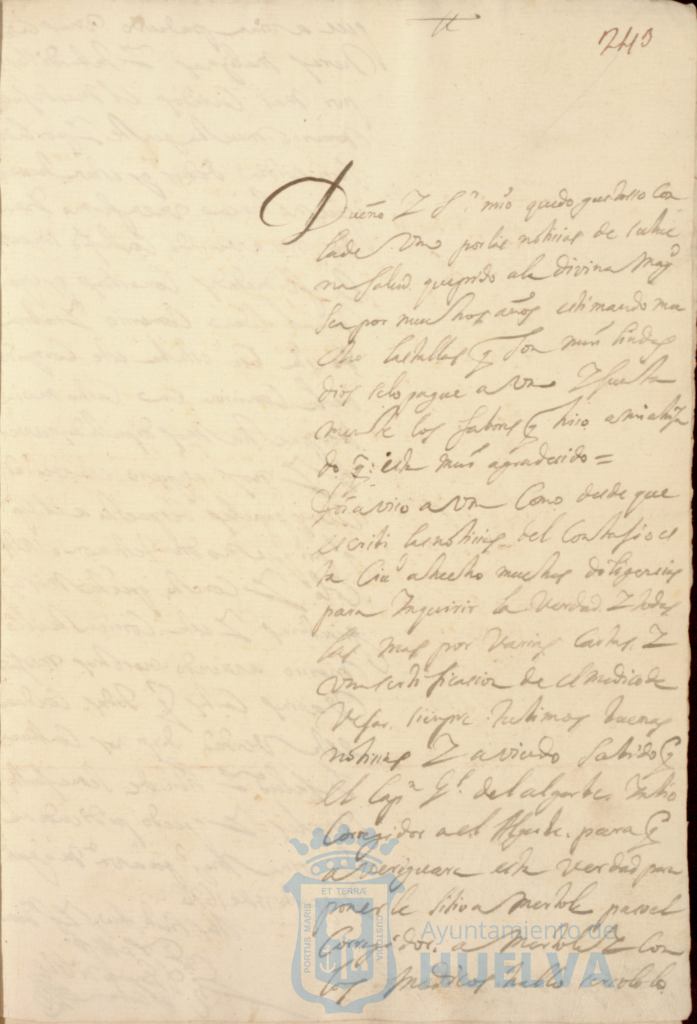 243
Dueño Y Sr mio quedo gustosso con
lade Vm por las notisias de su bue
na salud. quepido ala divina Magd
sea por muchos años estimando mu
cho las tallas q son mui lindas
dios selo pague a Vm Y
los fabores q hiso a mi ahija
do q esta mui agradesido =
aviso a Vm Como desde que
escribi las notisias del Contajio es
ta Ciud a hecho muchas dilijensias
para Inquirir la Verdad. Y todas
las mas por Varias Cartas. Y
Vna sertificasion de el medico de
Vejar. siempre tubimos buenas
notisias Y aviendo sabido q
el Capn Gl. del algarbe. Inbio
Corregidor a el Algarbe. para q
averiguara esta Verdad para
ponerle sitio a Mertola paso el
Corregidor. a Mertola Y Con
los Medicos hallo ser
PORTUS MARIS ET TERRÆ CUSTODIA
Ayuntamiento de
HUELVA